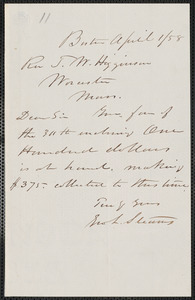 11
Boston April 1/58
Rev T. W. Higginson
Worcester
Mass.
Dear Sir
Your favor of
the 30th enclosing One
Hundred dollars
is at hand, making
$375 collected to this time.
Truly Yours
Geo L. Stearns